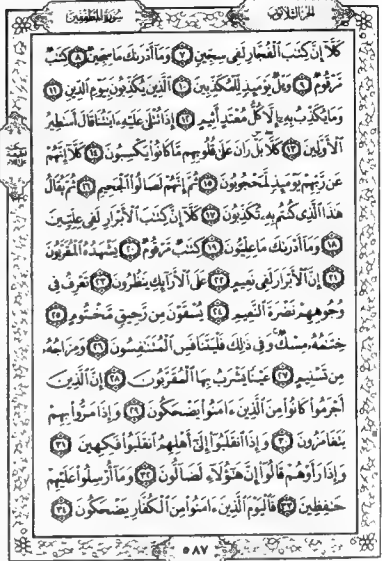 سُورَةُ المُطَفِّفِينَ
الجُزءُ الثَّلَاثُونَ
كَلَّا إِنَّ كِتَٰبَ الْفُجَّارِ لَفِى سِجِّينٍ ٧ وَمَا أَدْرَىٰكَ مَا سِجِّينٌ ٨ كِتَٰبٌ
مَّرْقُومٌ ٩ وَيْلٌ يَوْمَئِذٍ لِّلْمُكَذِّبِينَ ١٠ الَّذِينَ يُكَذِّبُونَ بِيَوْمِ الدِّينِ ١١
وَمَا يُكَذِّبُ بِهِۦٓ إِلَّا كُلُّ مُعْتَدٍ أَثِيمٍ ١٢ إِذَا تُتْلَىٰ عَلَيْهِ ءَايَٰتُنَا قَالَ أَسَٰطِيرُ
الْأَوَّلِينَ ١٣ كَلَّا بَلْ رَانَ عَلَىٰ قُلُوبِهِم مَّا كَانُوا۟ يَكْسِبُونَ ١٤ كَلَّآ إِنَّهُمْ
عَن رَّبِّهِمْ يَوْمَئِذٍ لَّمَحْجُوبُونَ ١٥ ثُمَّ إِنَّهُمْ لَصَالُوا۟ الْجَحِيمِ ١٦ ثُمَّ يُقَالُ
هَٰذَا الَّذِى كُنتُم بِهِۦ تُكَذِّبُونَ ١٧ كَلَّآ إِنَّ كِتَٰبَ الْأَبْرَارِ لَفِى عِلِّيِّينَ
١٨ وَمَآ أَدْرَىٰكَ مَا عِلِّيُّونَ ١٩ كِتَٰبٌ مَّرْقُومٌ ٢٠ يَشْهَدُهُ الْمُقَرَّبُونَ
٢١ إِنَّ الْأَبْرَارَ لَفِى نَعِيمٍ ٢٢ عَلَى الْأَرَآئِكِ يَنظُرُونَ ٢٣ تَعْرِفُ فِى
وُجُوهِهِمْ نَضْرَةَ النَّعِيمِ ٢٤ يُسْقَوْنَ مِن رَّحِيقٍ مَّخْتُومٍ ٢٥
خِتَٰمُهُۥ مِسْكٌ وَفِى ذَٰلِكَ فَلْيَتَنَافَسِ الْمُتَنَٰفِسُونَ ٢٦ وَمِزَاجُهُۥ
مِن تَسْنِيمٍ ٢٧ عَيْنًا يَشْرَبُ بِهَا الْمُقَرَّبُونَ ٢٨ إِنَّ الَّذِينَ
أَجْرَمُوا۟ كَانُوا۟ مِنَ الَّذِينَ ءَامَنُوا۟ يَضْحَكُونَ ٢٩ وَإِذَا مَرُّوا۟ بِهِمْ
يَتَغَامَزُونَ ٣٠ وَإِذَا انقَلَبُوٓا۟ إِلَىٰٓ أَهْلِهِمُ انقَلَبُوا۟ فَكِهِينَ ٣١
وَإِذَا رَأَوْهُمْ قَالُوٓا۟ إِنَّ هَٰٓؤُلَآءِ لَضَآلُّونَ ٣٢ وَمَآ أُرْسِلُوا۟ عَلَيْهِمْ
حَٰفِظِينَ ٣٣ فَالْيَوْمَ الَّذِينَ ءَامَنُوا۟ مِنَ الْكُفَّارِ يَضْحَكُونَ ٣٤
٥٨٧